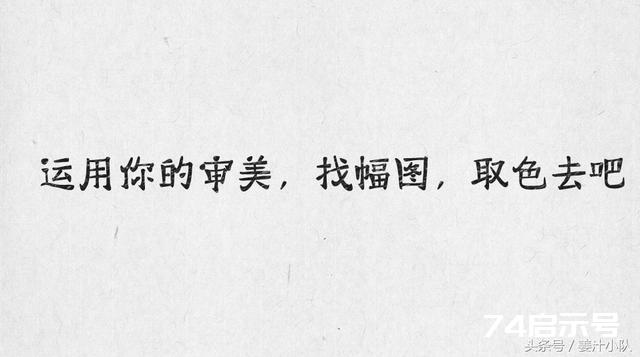 运用你的审美，找幅图，取色去吧
74启示号
头条号 / 姜汁小队